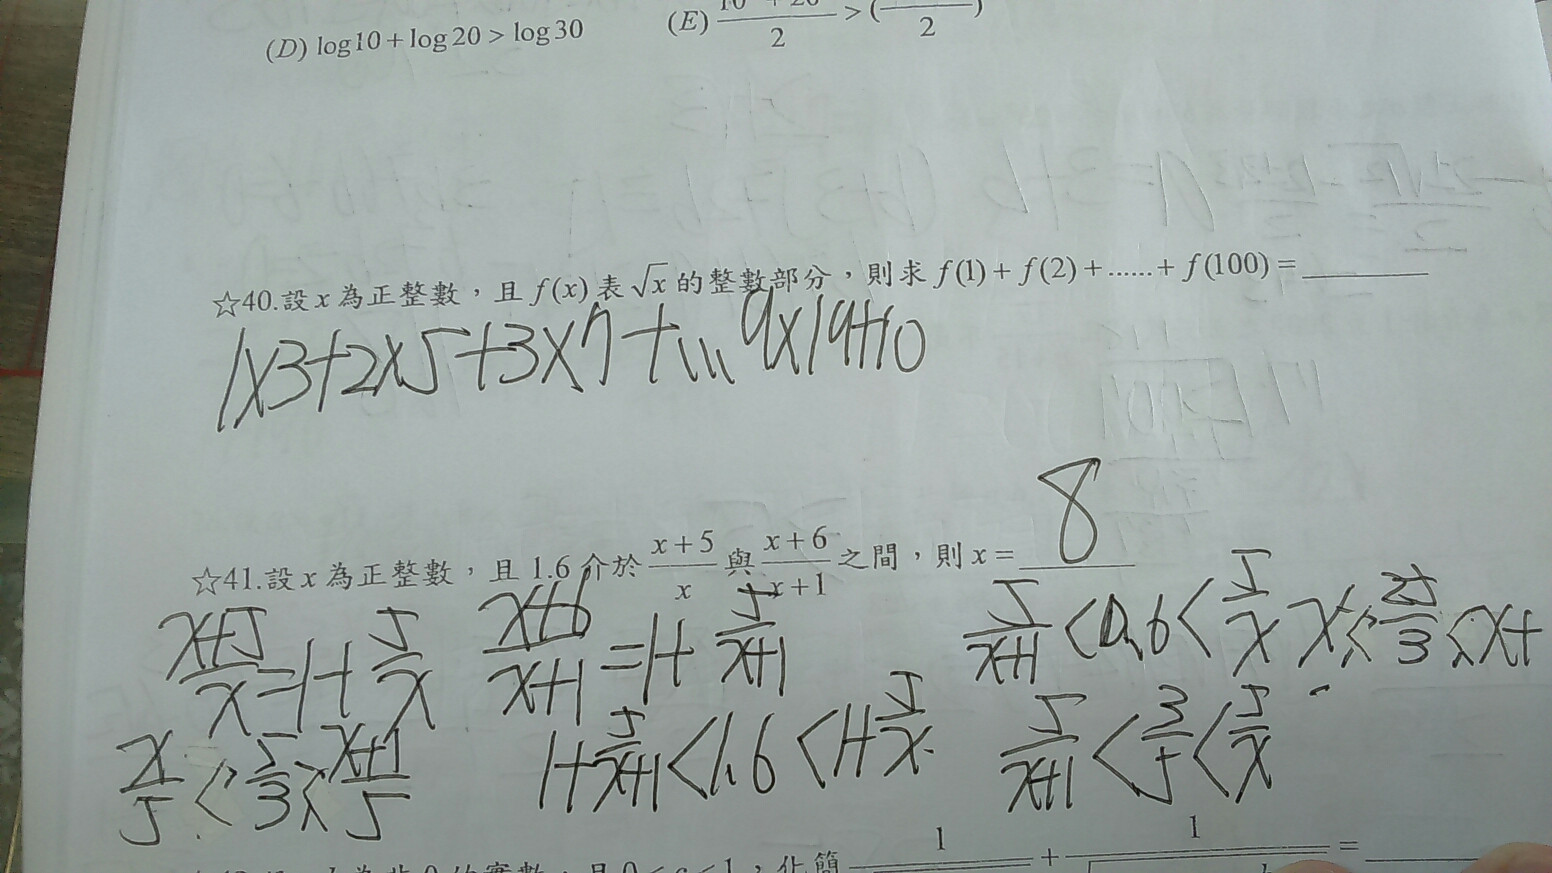 (D) log10 + log20 > log30
(E) 2 > ( 2 )
☆40.設 x 為正整數，且 f(x) 表 √x 的整數部分，則求 f(1) + f(2) + ...... + f(100) = ________
1×3+2×5+3×7+... 9×19+10
☆41.設 x 為正整數，且 1.6 介於 (x+5)/x 與 (x+6)/(x+1) 之間，則 x = 8
(x+5)/x = 1+ 5/x
(x+6)/(x+1) = 1+ 5/(x+1)
5/(x+1) < 0.6 < 5/x
x < 25/3 < x+
x/5 < 5/3 < (x+1)/5
1+ 5/(x+1) < 1.6 < 1+ 5/x
5/(x+1) < 3/5 < 5/x
為非 0 的實數，且 0 < < 1，化簡 1 + 1 = ________